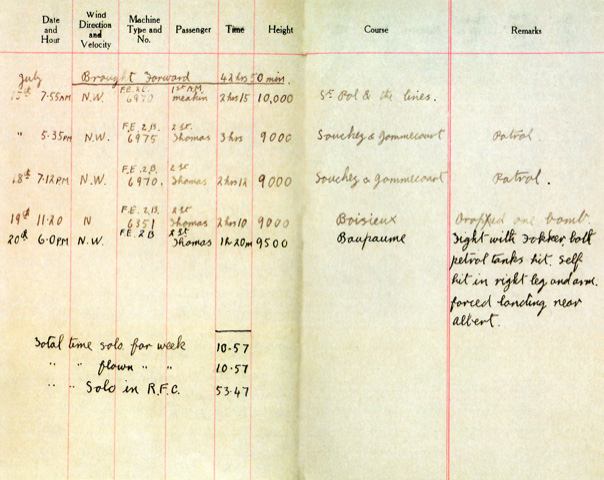 Date and Hour Wind Direction and Velocity Machine Type and No. Passenger Time Height Course Remarks
July Brought Forward 42 hrs 50 mins.
17th 7.55 AM N.W. F.E. 2.B. 6970 1st A.M. Meakin 2 hrs 15 10,000 St Pol & the lines.
" 5.35 PM N.W. F.E. 2.B. 6975 2 Lt. Thomas 3 hrs 9000 Souchez & Gommecourt Patrol.
18th 7.12 PM N.W. F.E. 2.B. 6970. 2 Lt Thomas 2 hrs 12 9000 Souchez & Gommecourt Patrol.
19th 11.20 N F.E. 2.B. 6351 2 Lt Thomas 2 hrs 10 9000 Boisieux Dropped one bomb.
20th 6.0 PM N.W. F.E. 2.B 2 Lt Thomas 1 h 20 m 9500 Baupaume Fight with Fokker, both
petrol tanks hit. Self
hit in right leg and arm.
forced landing near
Albert.
Total time solo for week 10.57
" " flown " " 10.57
" " Solo in R.F.C. 53.47